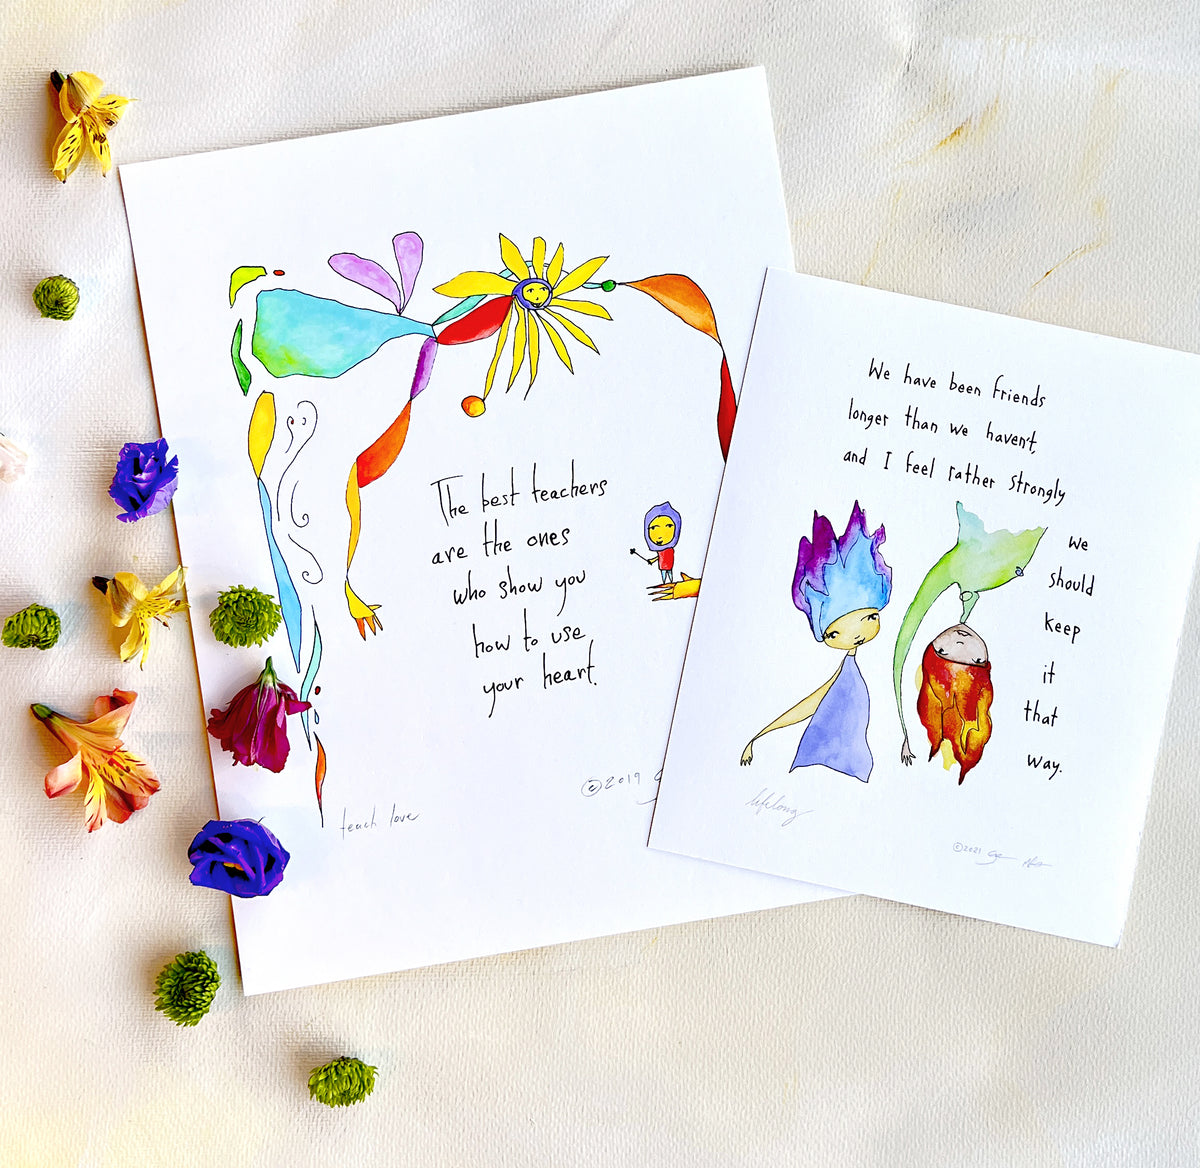 The best teachers
are the ones
who show you
how to use
your heart.
teach love
©2019
We have been friends
longer than we haven't,
and I feel rather strongly
we
should
keep
it
that
way.
lifelong
©2021